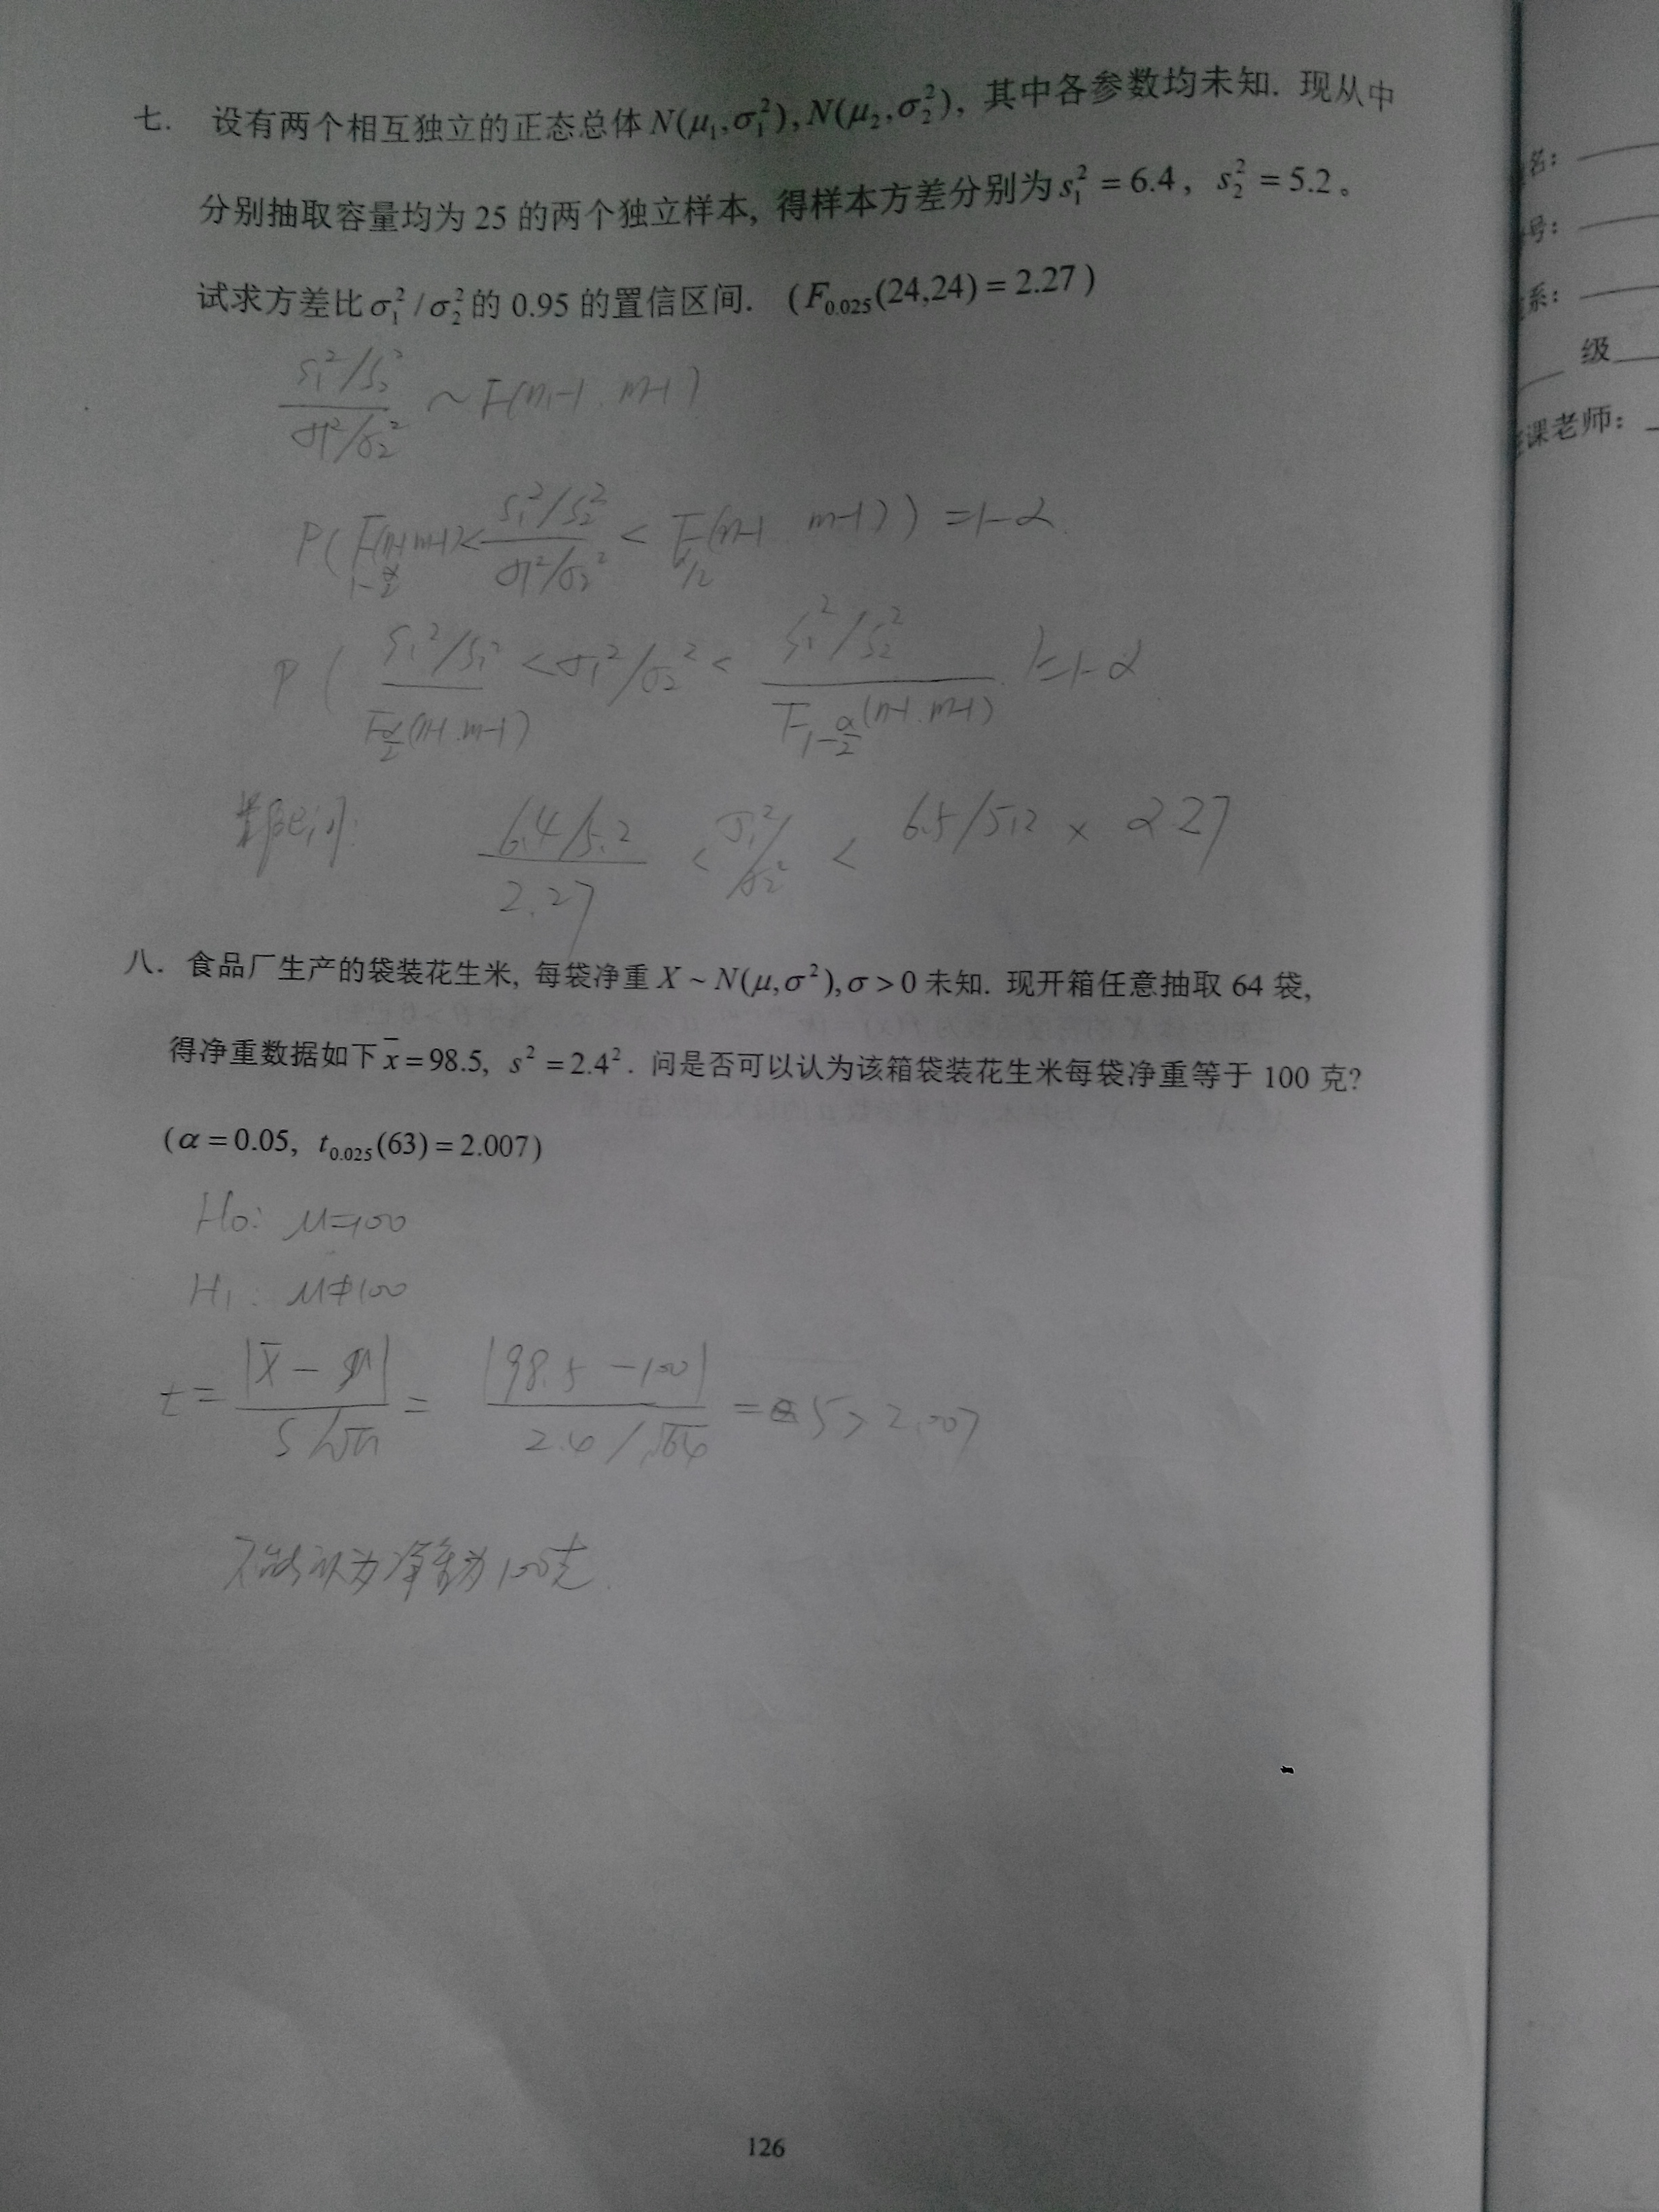 七. 设有两个相互独立的正态总体 N(μ₁,σ₁²), N(μ₂,σ₂²), 其中各参数均未知. 现从中
分别抽取容量均为 25 的两个独立样本, 得样本方差分别为 s₁² = 6.4, s₂² = 5.2。
试求方差比 σ₁²/σ₂² 的 0.95 的置信区间. (F₀.₀₂₅(24,24) = 2.27)
(S₁²/S₂²)/(σ₁²/σ₂²) ~ F(n-1, m-1)
P(F_{1-α/2}(n-1, m-1) < (S₁²/S₂²)/(σ₁²/σ₂²) < F_{α/2}(n-1, m-1)) = 1-α
P((S₁²/S₂²)/F_{α/2}(n-1, m-1) < σ₁²/σ₂² < (S₁²/S₂²)/F_{1-α/2}(n-1, m-1)) = 1-α
(6.4/5.2)/2.27 < σ₁²/σ₂² < 6.5/5.2 × 2.27
八. 食品厂生产的袋装花生米, 每袋净重 X ~ N(μ,σ²), σ > 0 未知. 现开箱任意抽取 64 袋,
得净重数据如下 x̄ = 98.5, s² = 2.4². 问是否可以认为该箱袋装花生米每袋净重等于 100 克?
(α = 0.05, t₀.₀₂₅(63) = 2.007)
H₀: μ=100
H₁: μ≠100
t = |x̄ - μ|/(S/√n) = |98.5 - 100|/(2.4/√64) = 5 > 2.007
不能认为净重为100克.
126
名:
号:
系:
级
课老师: